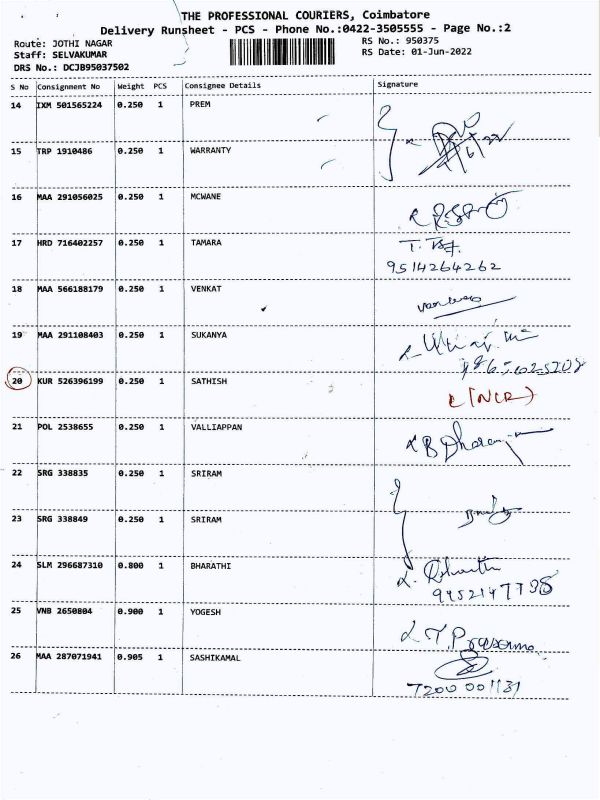 THE PROFESSIONAL COURIERS, Coimbatore
Delivery Runsheet - PCS - Phone No.:0422-3505555 - Page No.:2
Route: JOTHI NAGAR
RS No.: 950375
Staff: SELVAKUMAR
RS Date: 01-Jun-2022
DRS No.: DCJB95037502
S No Consignment No Weight PCS Consignee Details Signature
14 IXM 501565224 0.250 1 PREM
15 TRP 1910486 0.250 1 WARRANTY
16 MAA 291056025 0.250 1 MCWANE
17 HRD 716402257 0.250 1 TAMARA
9514264262
18 MAA 566188179 0.250 1 VENKAT
19 MAA 291108403 0.250 1 SUKANYA
20 KUR 526396199 0.250 1 SATHISH (NCR)
21 POL 2538655 0.250 1 VALLIAPPAN
22 SRG 338835 0.250 1 SRIRAM
23 SRG 338849 0.250 1 SRIRAM
24 SLM 296687310 0.800 1 BHARATHI
25 VNB 2650804 0.900 1 YOGESH
26 MAA 287071941 0.905 1 SASHIKAMAL